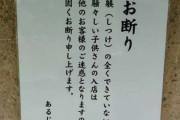 お断り
躾(しつけ)の全くできていない
騒々しい子供さんの入店は
他のお客様のご迷惑となりますので
固くお断り申し上げます。
あるじ